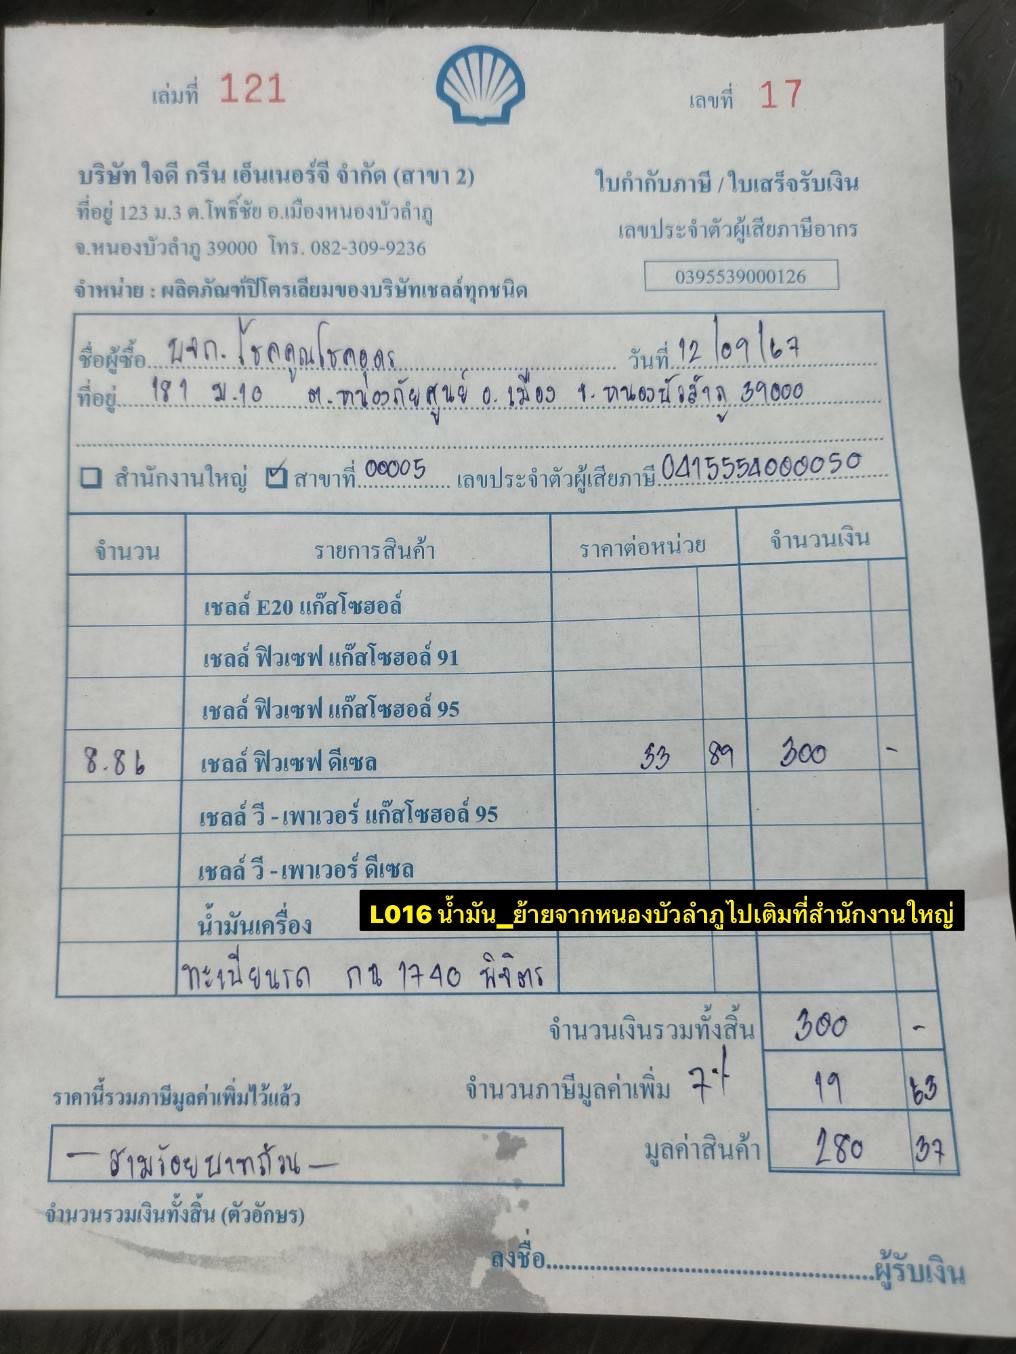 เล่มที่ 121
เลขที่ 17
บริษัท ใจดี กรีน เอ็นเนอร์จี จำกัด (สาขา 2)
ใบกำกับภาษี / ใบเสร็จรับเงิน
ที่อยู่ 123 ม.3 ต.โพธิ์ชัย อ.เมืองหนองบัวลำภู
เลขประจำตัวผู้เสียภาษีอากร
จ.หนองบัวลำภู 39000 โทร. 082-309-9236
0395539000126
จำหน่าย : ผลิตภัณฑ์ปิโตรเลียมของบริษัทเชลล์ทุกชนิด
ชื่อผู้ซื้อ บจก. โชคคูณโชคอุดร วันที่ 12/09/67
ที่อยู่ 181 ม.10 ต.หนองภัยศูนย์ อ.เมือง จ.หนองบัวลำภู 39000
สำนักงานใหญ่ สาขาที่ 00005 เลขประจำตัวผู้เสียภาษี 0415554000050
จำนวน รายการสินค้า ราคาต่อหน่วย จำนวนเงิน
เชลล์ E20 แก๊สโซฮอล์
เชลล์ ฟิวเซฟ แก๊สโซฮอล์ 91
เชลล์ ฟิวเซฟ แก๊สโซฮอล์ 95
8.86 เชลล์ ฟิวเซฟ ดีเซล 33 89 300 -
เชลล์ วี - เพาเวอร์ แก๊สโซฮอล์ 95
เชลล์ วี - เพาเวอร์ ดีเซล
น้ำมันเครื่อง
L016 น้ำมัน_ย้ายจากหนองบัวลำภูไปเติมที่สำนักงานใหญ่
ทะเบียนรถ กน 1740 พิจิตร
จำนวนเงินรวมทั้งสิ้น 300 -
จำนวนภาษีมูลค่าเพิ่ม 7% 19 63
ราคานี้รวมภาษีมูลค่าเพิ่มไว้แล้ว
มูลค่าสินค้า 280 37
- สามร้อยบาทถ้วน -
จำนวนรวมเงินทั้งสิ้น (ตัวอักษร)
ลงชื่อ ผู้รับเงิน